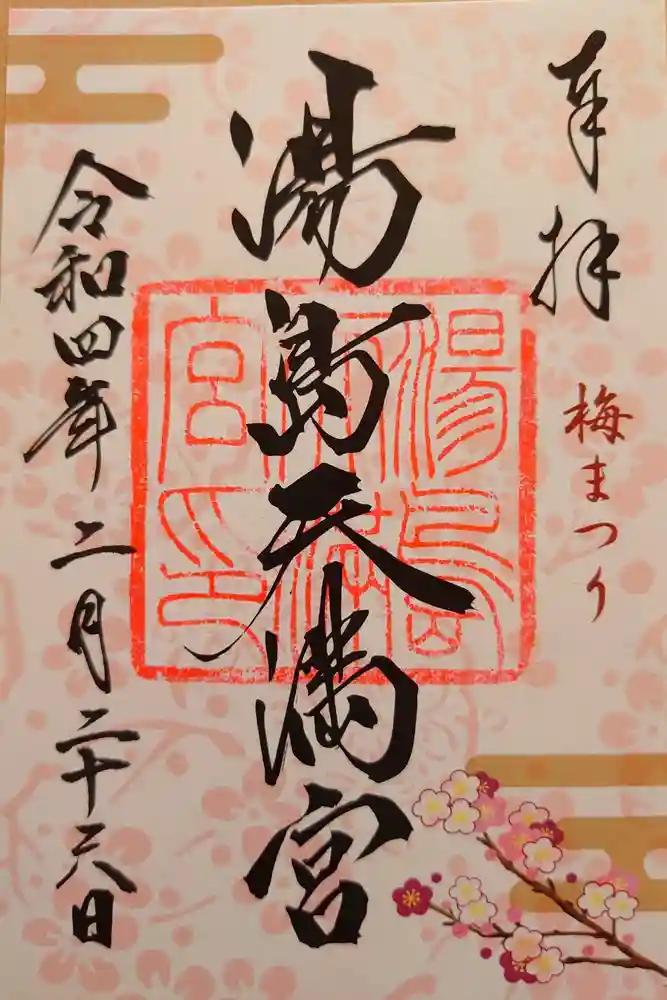 奉拝
梅まつり
湯島天満宮
湯島天満宮印
令和四年二月二十六日